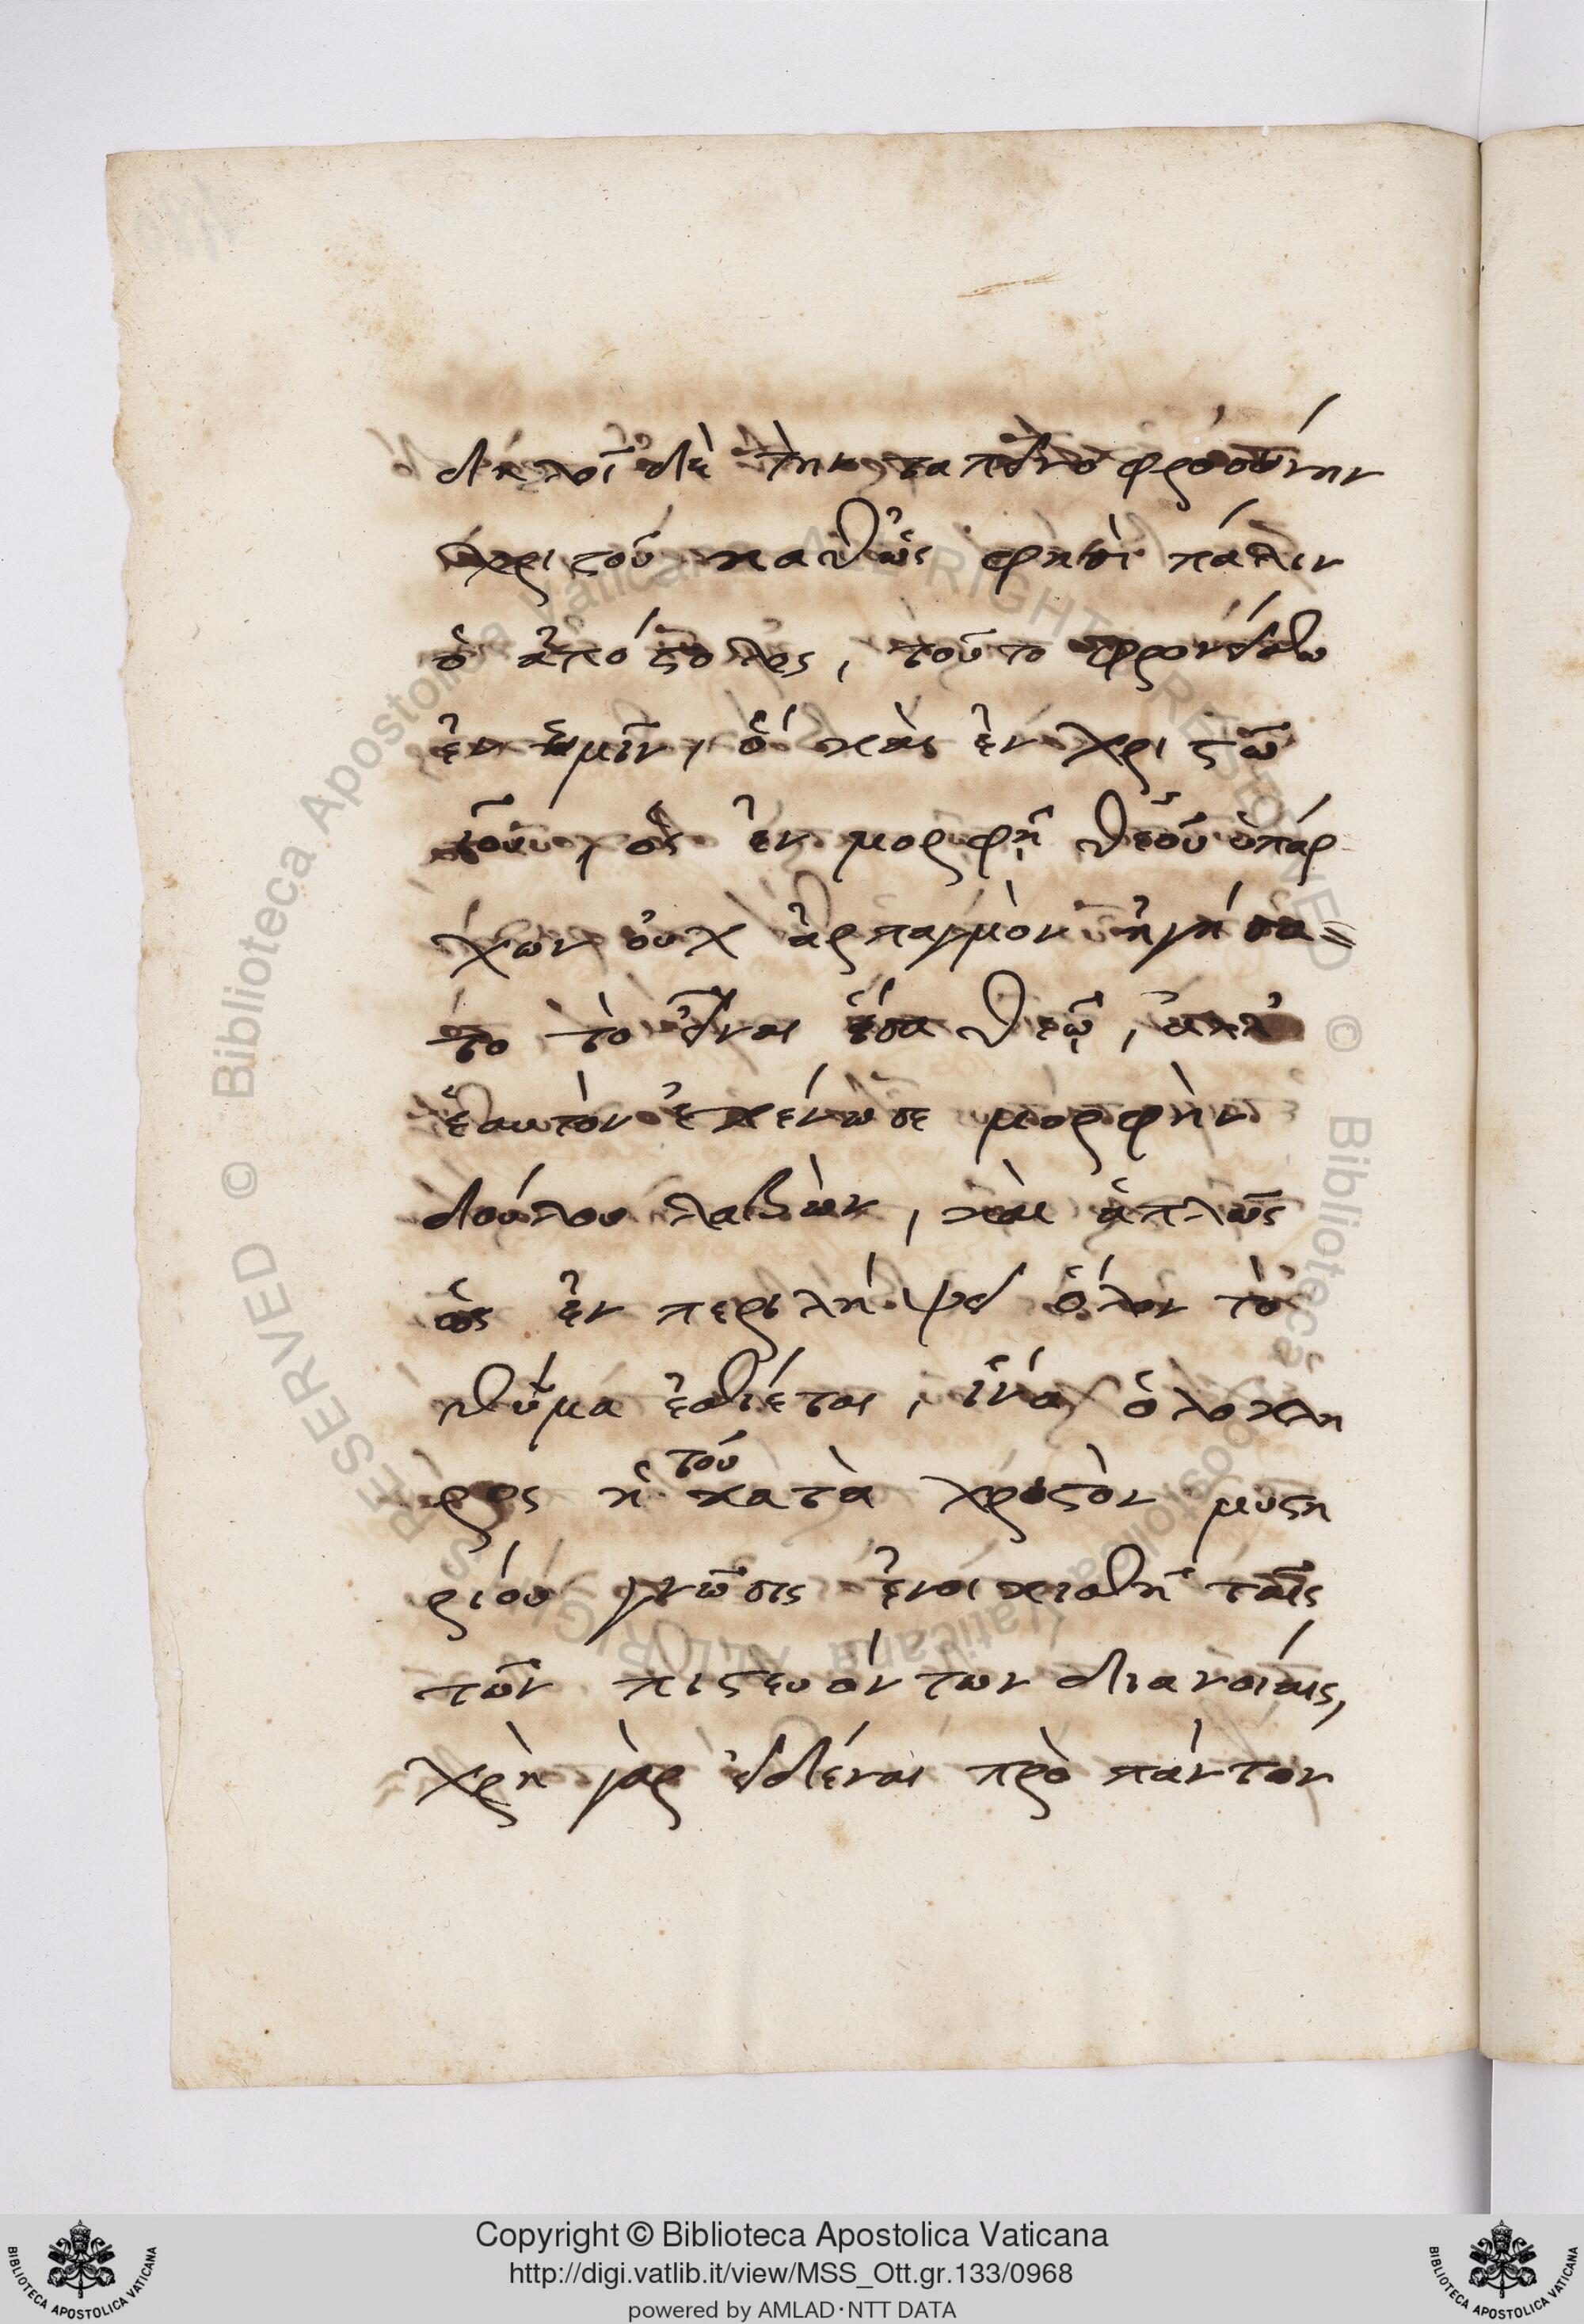 δηλοῖ δὲ τὴν ταπεινοφροσύνην
χριστοῦ καθώς φησὶ πάλιν
ὁ ἀπόστολος, τοῦτο φρονείσθω
ἐν ὑμῖν, ὃ καὶ ἐν χριστῶ
ἰησοῦ, ὃς ἐν μορφῇ θεοῦ ὑπάρ
χων οὐχ ἁρπαγμὸν ἡγήσα=
το τὸ εἶναι ἴσα θεῷ, ἀλλ'
ἑαυτὸν ἐκένωσε μορφὴν
δούλου λαβὼν, καὶ ἁπλῶς
ὡς ἐν περιλήψει ὅλον τὸ
θῦμα ἐσθίεται, ἵνα ὁλόκλη
ρος ἡ τοῦ κατὰ χριστὸν μυστη
ρίου γνῶσις ἐνοικισθῇ ταῖς
τῶν πιστευόντων διανοίαις,
χρὴ γὰρ εἰδέναι πρὸ πάντων
Copyright © Biblioteca Apostolica Vaticana
http://digi.vatlib.it/view/MSS_Ott.gr.133/0968
powered by AMLAD·NTT DATA
BIBLIOTECA APOSTOLICA VATICANA
BIBLIOTECA APOSTOLICA VATICANA
© Biblioteca Apostolica Vaticana ALL RIGHTS RESERVED © Biblioteca Apostolica Vaticana ALL RIGHTS RESERVED